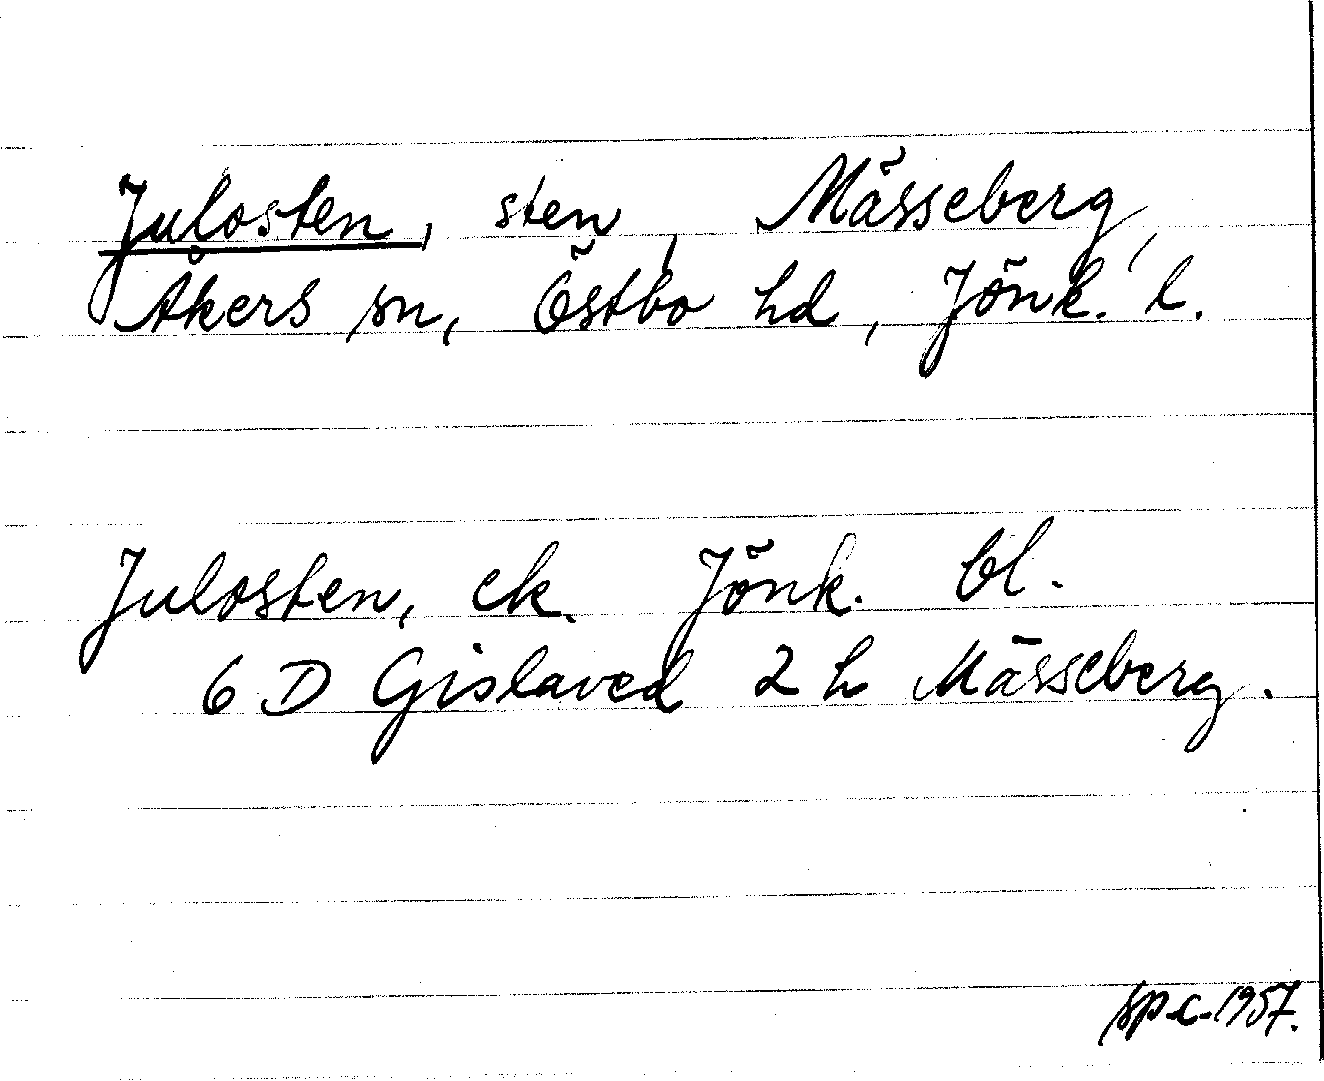 Julosten, sten, Mässeberg,
Åkers sn, Östbo hd, Jönk. l.
Julosten, ek. Jönk. bl.
6 D Gislaved 2 h Mässeberg.
1957.